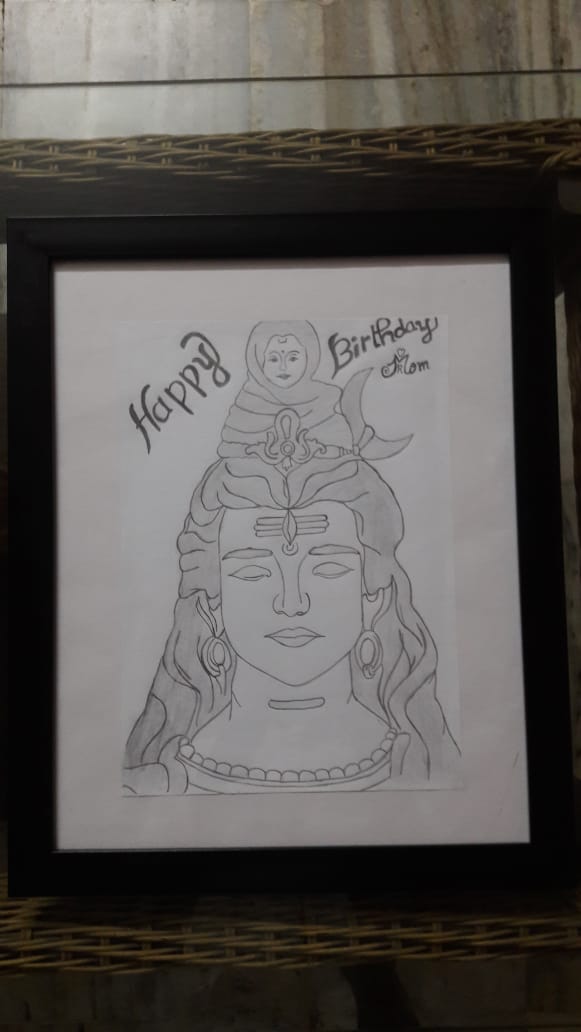 Happy
Birthday
Mom